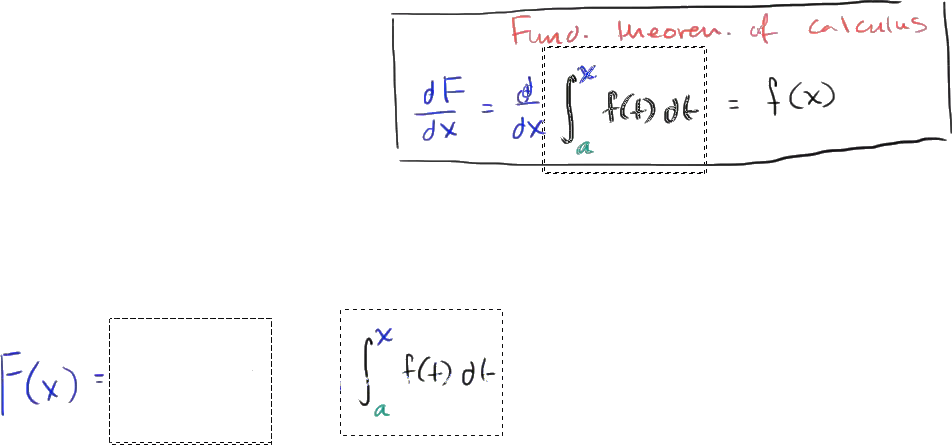 Fund. theorem. of calculus
dF/dx = d/dx ∫ₐˣ f(t) dt = f(x)
F(x) = ∫ₐˣ f(t) dt